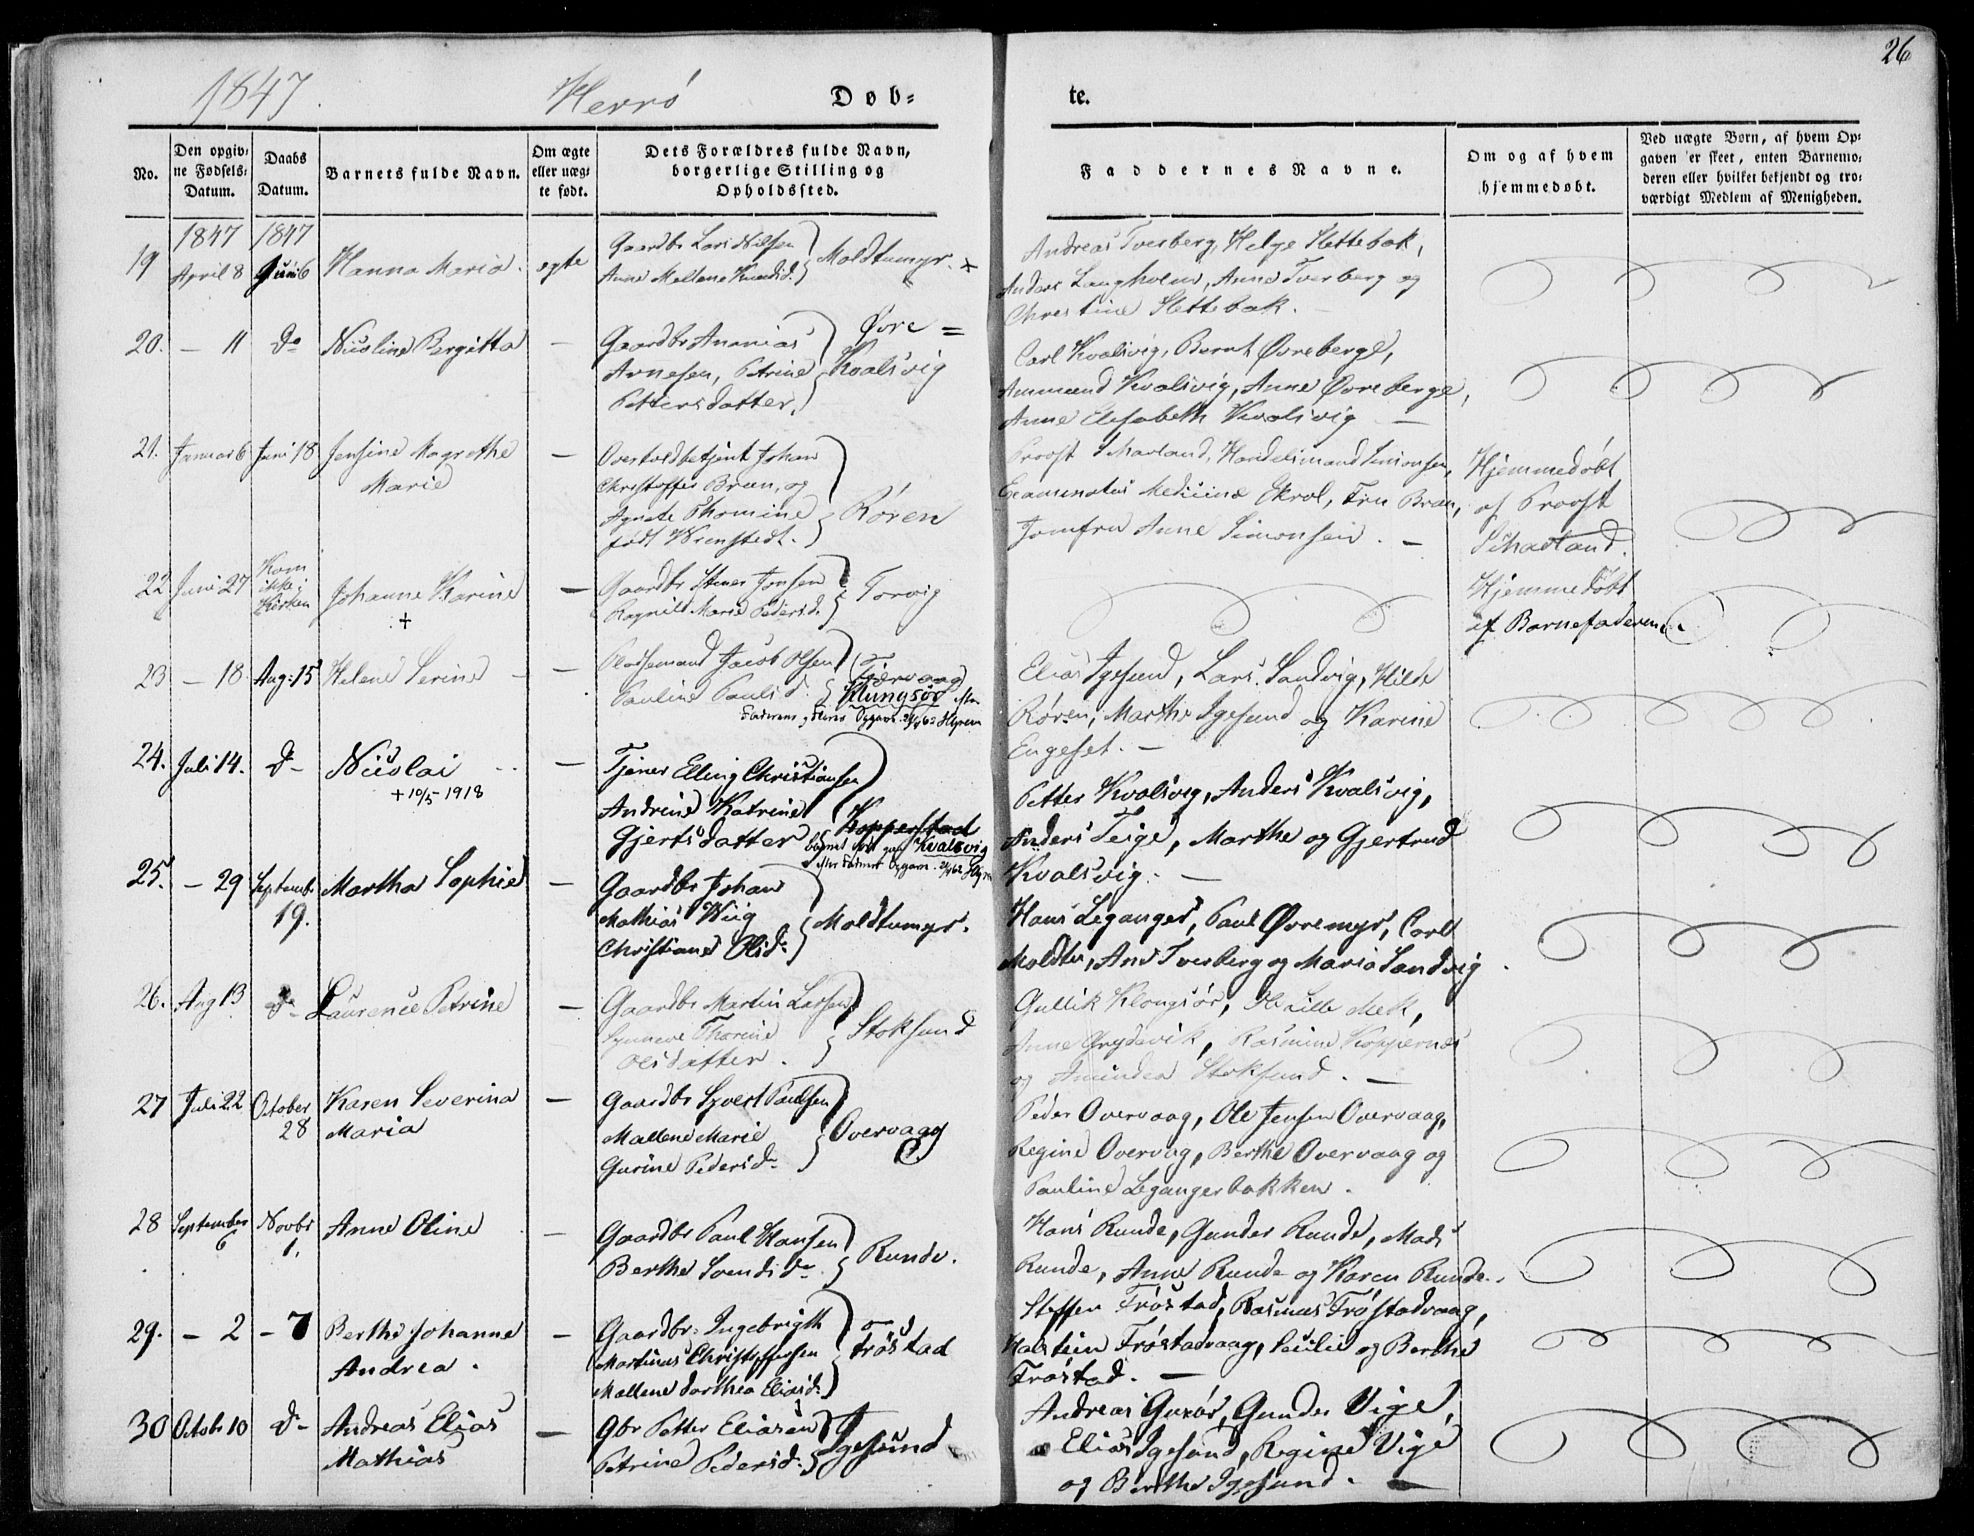 26
1847. Herrö Døb= te.
No.
Den opgiv=
ne Fødsels=
Datum.
Daabs
Datum.
Barnets fulde Navn.
Om ægte
eller uæg=
te født.
Dets Forældres fulde Navn,
borgerlige Stilling og
Opholdssted.
Faddernes Navne.
Om og af hvem
hjemmedøbt.
Ved uægte Børn, af hvem Op=
gaven er skeet, enten Barnemo=
deren eller hvilket bekjendt og tro=
værdigt Medlem af Menigheden.
1847 1847
19 April 8 Juni 6 Hanna Maria. egte
Gaardbr Lars Nilsen
Anne Mallene Knudsd.
Moldtumyr. +
Andreas Tverberg, Helge Slettebak,
Anders Langholm, Anne Tverberg og
Christine Slettebak.
20. — 11 do Nicoline Bergitta —
Gaardbr Ananias
Arnesen, Petrine
Pettersdatter,
Øvre =
Kvalsvig
Carl Kvalsvig, Bernt Øvreberge,
Ammund Kvalsvig, Anne Øvreberge,
Anne Elisabeth Kvalsvig —
21. Januar 6 Juni 18 Jensine Magrethe
Marie —
Overtoldbetjent Johan
Christoffer Bruun, og
Agnete Thomine
født Wienstedt.
Røren
Provst Schavland, Handelsmand Simonsen,
Examinatus Medicinæ Ekrol, Fru Bruun,
Jomfru Anne Simonsen. —
Hjemmedøbt
af Provst
Schavland.
22 Juni 27 Kom
ikke i
Kirken
Johanne Karine
+ —
Gaardbr Stener Jensen
Ragnild Marie Pedersd.
Torvig
Hjemmedøbt
af Barnefaderen.
23 — 18 Aug: 15 Helene Serine —
Pladsemand Jacob Olsen
Pauline Paulsd.
(Tjærvaag)
Klungsør
Elias Igesund, Lars Sandvig, Hilde
Røren, Marthe Igesund og Karine
Engeset. —
24. Juli 14. d— Nicolai —
+ 10/5 1918
Tjener Elling Christiansen
Andrine Katrine
Gjertsdatter
Kopperstad
Kvalsvig
Petter Kvalsvig, Anders Kvalsvig,
Anders Teige, Marthe og Gjertrud
Kvalsvig. —
25. — 29 Septemb.
19.
Martha Sophie —
Gaardbr Johan
Mathias Wiig
Christiane Olsd:
Moldtumyr.
Hans Leganger, Paul Øvremyr, Carl
Moldtu, Ane Tverberg og Maria Sandvig
26. Aug 13 d— Laurence Petrine —
Gaardbr Martin Larsen
Synneve Thorine
Olsdatter.
Stoksund
Gullik Klongsør, Ole Lille Mek,
Anne Grydevik, Rasmine Koppernæs
og Aminda Stoksund. —
27 Juli 22 October
28
Karen Severina
Maria —
Gaardbr Syvert Paulsen
Mallene Marie
Gurine Pedersd.
Overvaag
Peder Overvaag, Ole Jensen Overvaag,
Regine Overvag, Berthe Overvaag og
Pauline Legangerbakken.
28 September
6 Novbr
1.
Anne Oline —
Gaardbr Paul Hansen
Berthe Svendsd.
Runde.
Hans Runde, Gunder Runde, Mads
Runde, Anne Runde og Karen Runde.
29. — 2 — 7 Berthe Johanne
Andrea. —
Gaardbr: Ingebrigth
Martinus Christoffersen
Mallene Dorthea Eliasd:
Frøstad
Steffen Frøstad, Rasmus Frøstadvaag,
Halstein Frøstadvaag, Cicilie og Berthe
Frøstad. —
30 Octobr 10 d— Andreas Elias
Mathias —
Gbr Petter Eliasen
Petrine Pedersd.
Igesund
Andreas Gurør, Gunder Vige,
Elias Igesund, Regine Vige
og Berthe Igesund. —